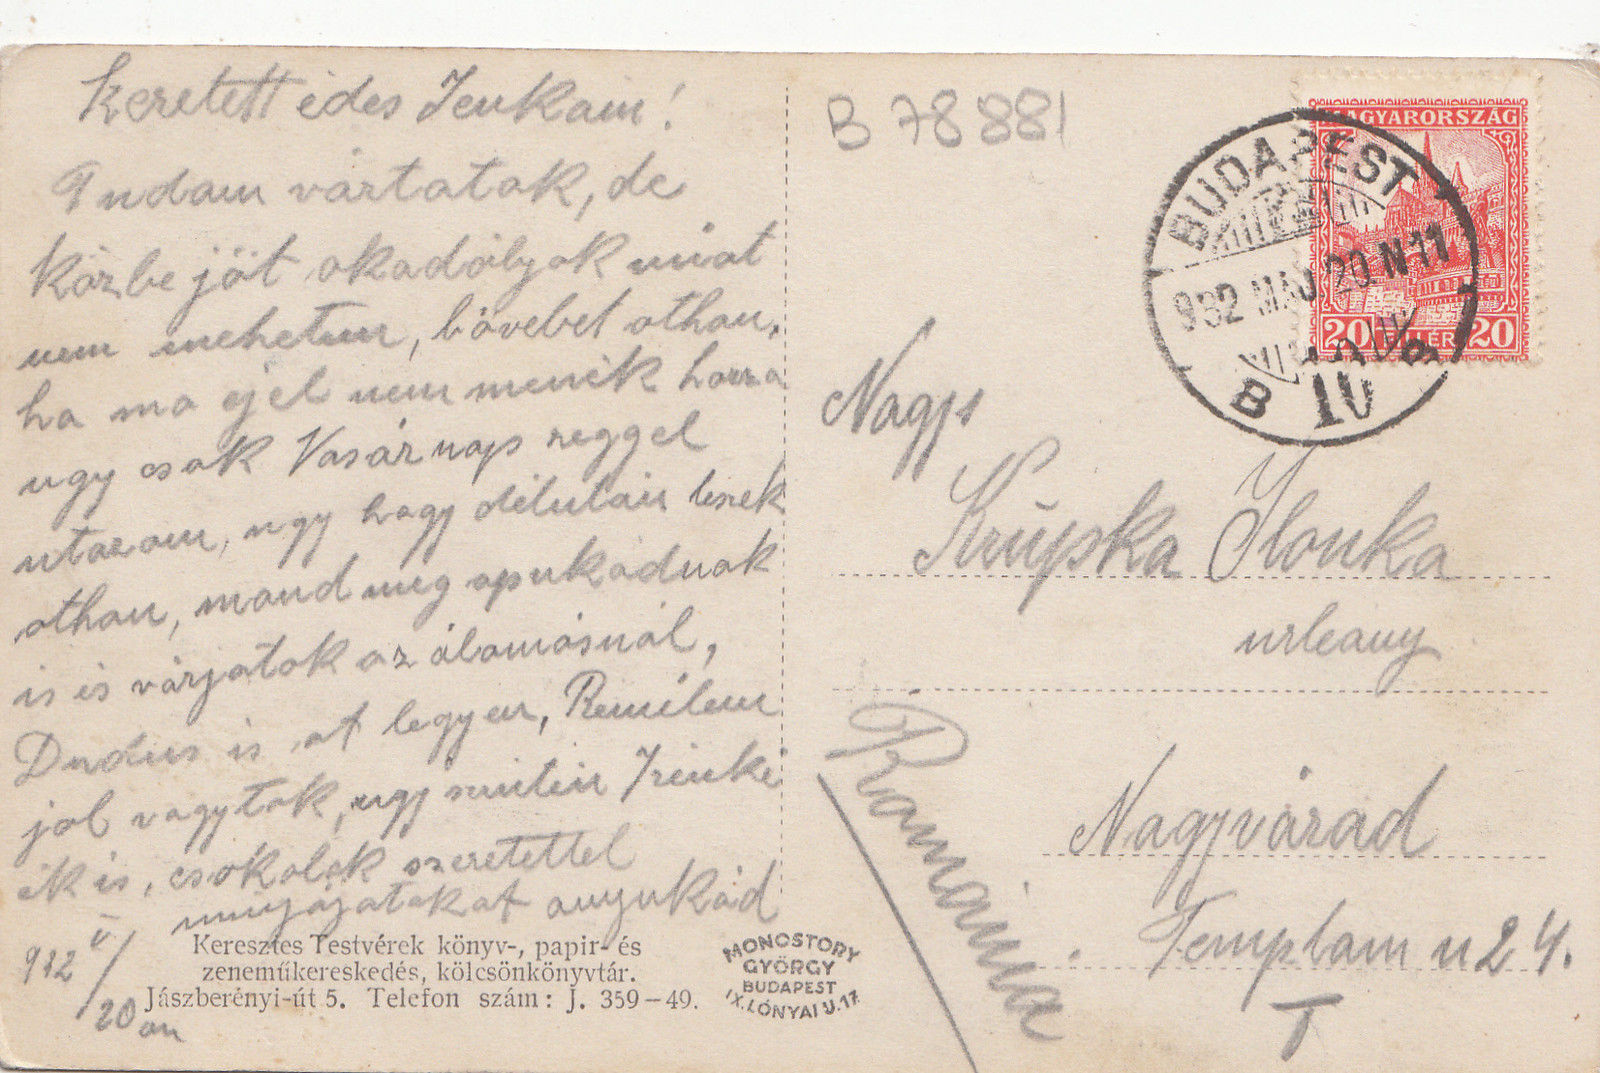 Keretett édes Ienkaim!
Tudam vártatok, de
közbe jöt akadályok miat
nem mehetum, bövebet othon,
ha ma éjel nem menék hozza
ugy csak Vasárnap reggel
utazom, ugy hogy délután leszek
othon, mond meg apukádnak
is és várjatok az álomásnál,
Dudus is ot legyen, Remélem
jol vagytok, ugy szintén Irénke
ék is, csokolok szeretettel
anyukád
932 V/20 án
Keresztes Testvérek könyv-, papir- és
zeneműkereskedés, kölcsönkönyvtár.
Jászberényi-út 5. Telefon szám: J. 359-49.
MONOSTORY
GYÖRGY
BUDAPEST
IX. LÓNYAI U. 17
B 78881
MAGYARORSZÁG
20 FILLÉR 20
BUDAPEST
932 MÁJ 20. N 11
B 10 B
Nagys
Krúpska Ilonka
urleany
Nagyvárad
Templam u 24.
T
Románia